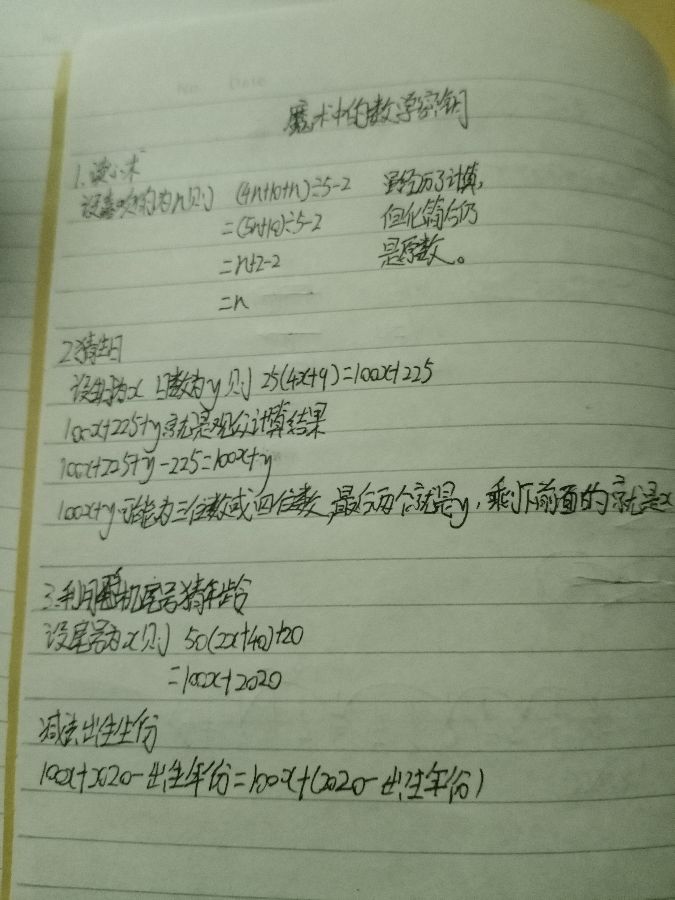 魔术中的数学密钥
1.读心术
设喜欢的为n则 (4n+10+n)÷5-2 虽经历了计算,
=(5n+10)÷5-2 但化简后仍
=n+2-2 是原数。
=n
2.猜生日
设月为x 日数为y则 25(4x+9)=100x+225
100x+225+y就是观众计算结果
100x+225+y-225=100x+y
100x+y可能为三位数或四位数,最后两个就是y,乘下前面的就是x
3.利用手机尾号猜年龄
设尾号为x则 50(2x+40)+20
=100x+2020
减去出生年份
100x+2020-出生年份=100x+(2020-出生年份)